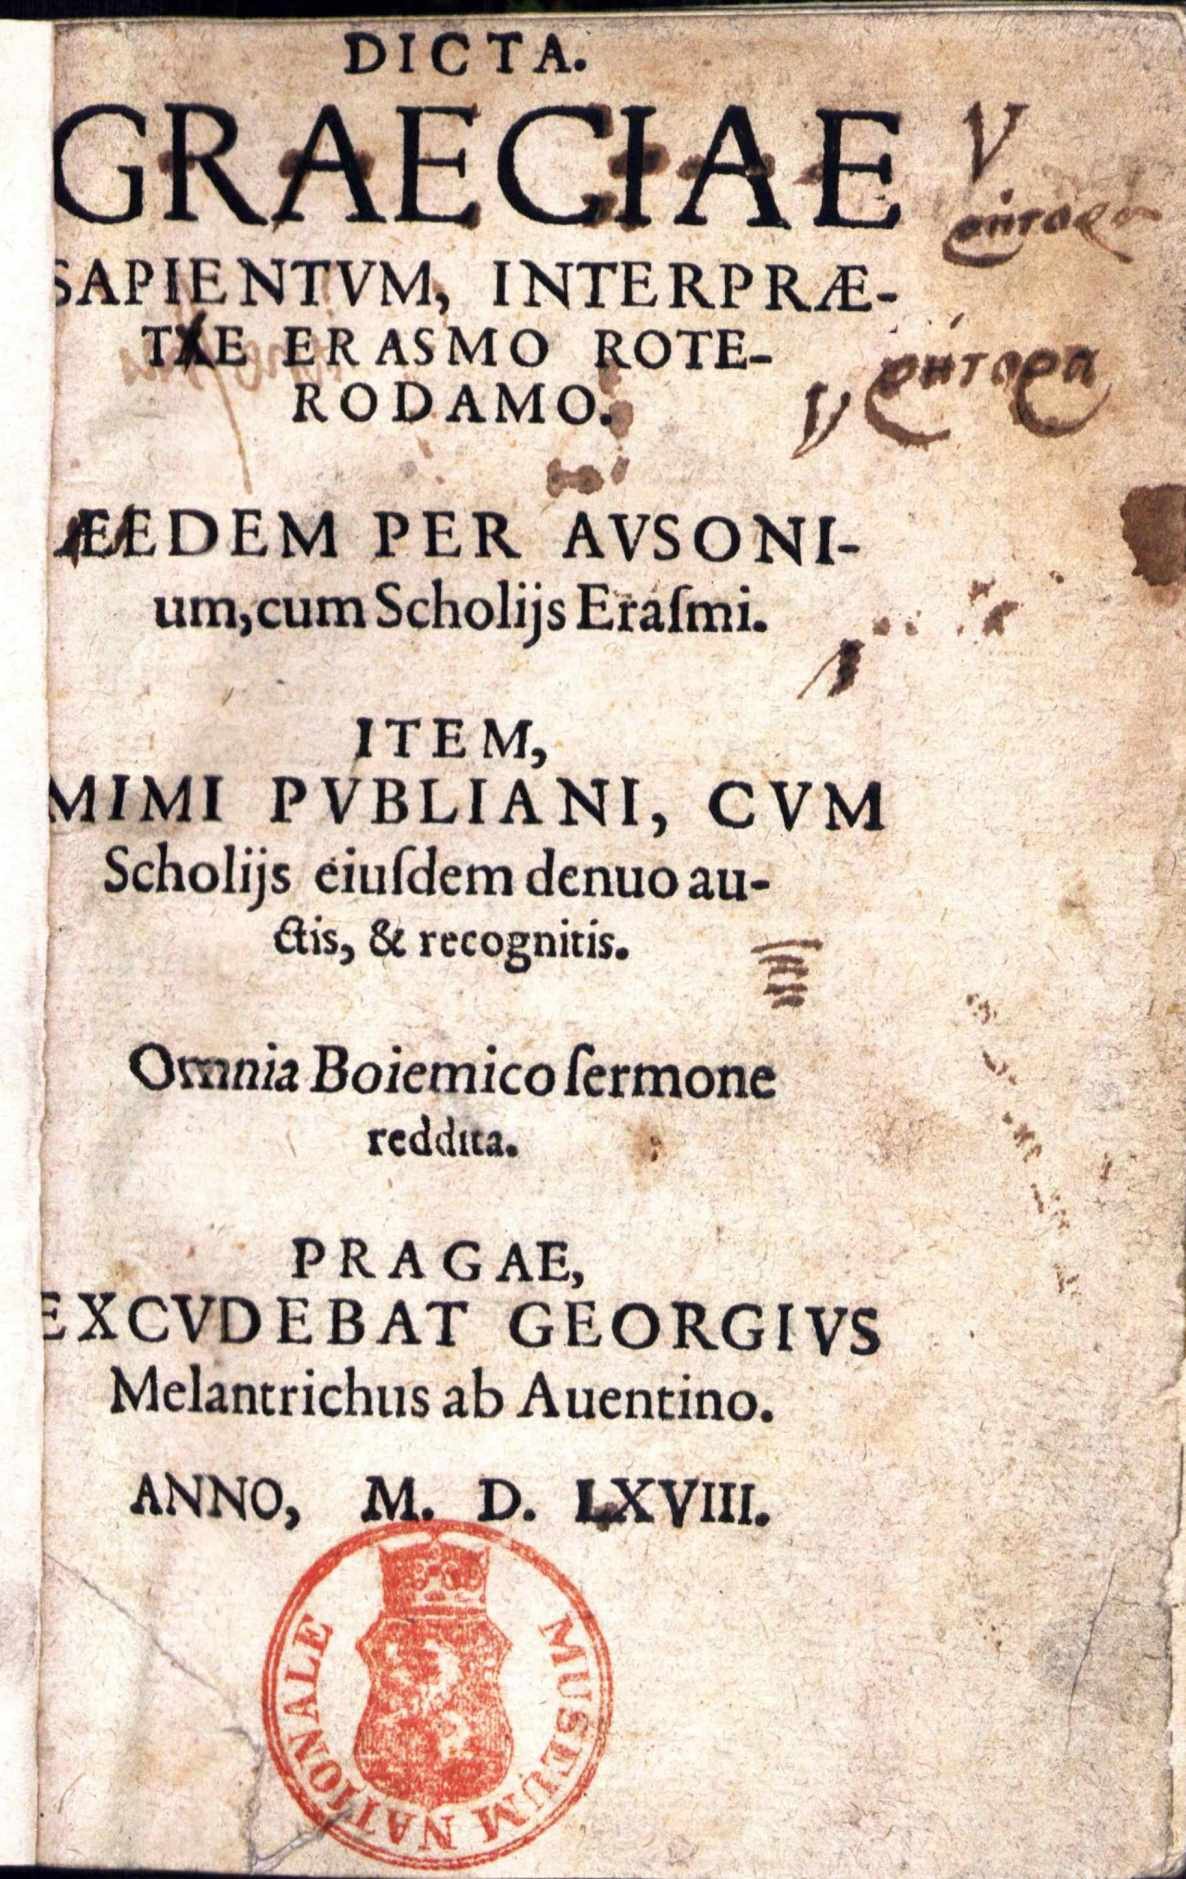 DICTA.
GRAECIAE
SAPIENTVM, INTERPRÆ-
TE ERASMO ROTE-
RODAMO.
EEDEM PER AVSONI-
um, cum Scholijs Eraſmi.
ITEM,
MIMI PVBLIANI, CVM
Scholijs eiuſdem denuo au-
ctis, & recognitis.
Omnia Boiemico ſermone
reddita.
PRAGAE,
EXCVDEBAT GEORGIVS
Melantrichus ab Auentino.
ANNO, M. D. LXVIII.
MUSEUM NATIONALE
V
ρητορα
V ρητορα